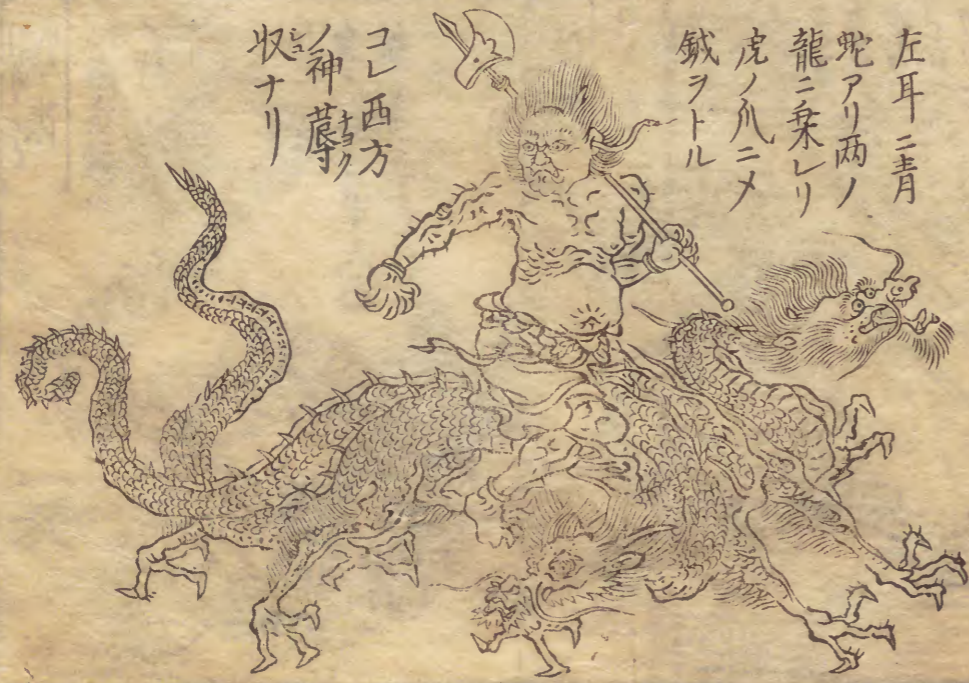 左耳ニ青
蛇アリ両ノ
龍ニ乗レリ
虎ノ爪ニメ
鉞ヲトル
コレ西方
ノ神蓐
収ナリ